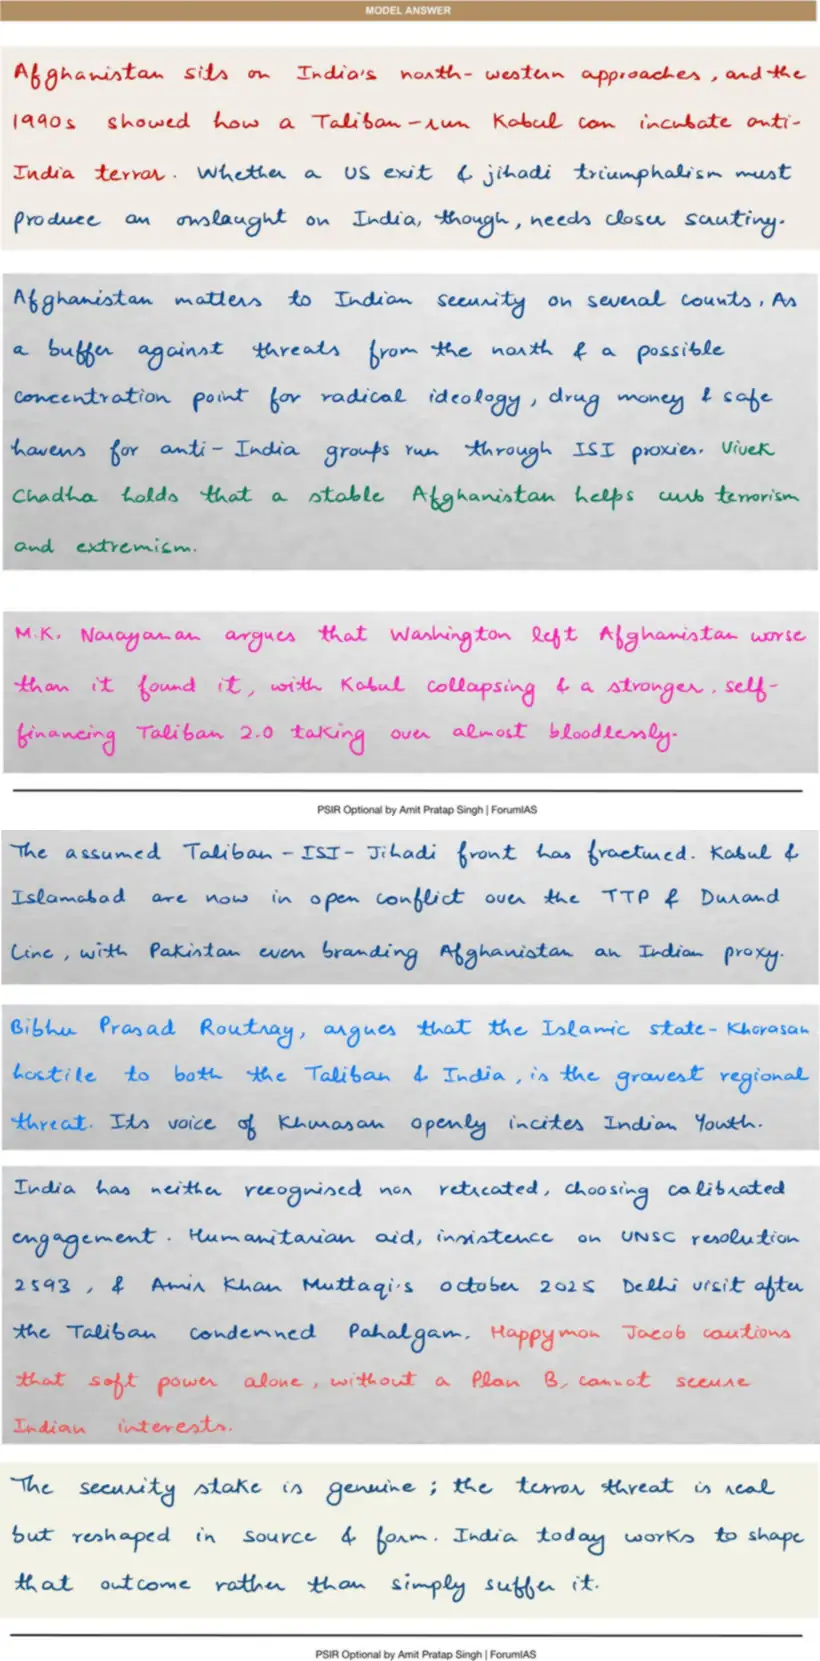 MODEL ANSWER
Afghanistan sits on India's north-western approaches, and the
1990s showed how a Taliban-run Kabul can incubate anti-
India terror. Whether a US exit & jihadi triumphalism must
produce an onslaught on India, though, needs closer scrutiny.
Afghanistan matters to Indian security on several counts. As
a buffer against threats from the north & a possible
concentration point for radical ideology, drug money & safe
havens for anti-India groups run through ISI proxies. Vivek
Chadha holds that a stable Afghanistan helps curb terrorism
and extremism.
M.K. Narayanan argues that Washington left Afghanistan worse
than it found it, with Kabul collapsing & a stronger, self-
financing Taliban 2.0 taking over almost bloodlessly.
PSIR Optional by Amit Pratap Singh | ForumIAS
The assumed Taliban-ISI-Jihadi front has fractured. Kabul &
Islamabad are now in open conflict over the TTP & Durand
Line, with Pakistan even branding Afghanistan an Indian proxy.
Bibhu Prasad Routray, argues that the Islamic state-Khorasan
hostile to both the Taliban & India, is the gravest regional
threat. Its voice of Khurasan openly incites Indian Youth.
India has neither recognised nor retreated, choosing calibrated
engagement. Humanitarian aid, insistence on UNSC resolution
2593, & Amir Khan Muttaqi's october 2025 Delhi visit after
the Taliban condemned Pahalgam. Happymon Jacob cautions
that soft power alone, without a Plan B, cannot secure
Indian interests.
The security stake is genuine; the terror threat is real
but reshaped in source & form. India today works to shape
that outcome rather than simply suffer it.
PSIR Optional by Amit Pratap Singh | ForumIAS